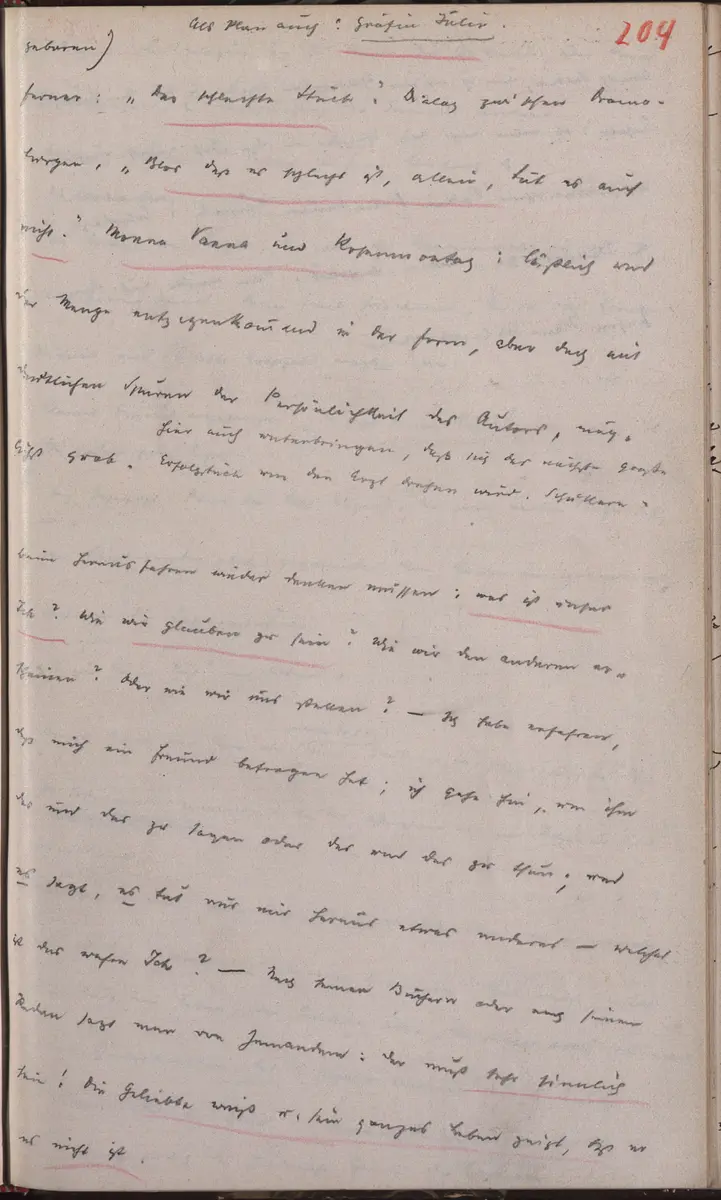 Als Plan auch: Gräfin Julie.
204
geboren)
ferner: „Das schlechte Stück". Dialog zwischen Drama-
turgen, „Blos daß es schlecht ist, allein, tut es auch
nicht." Monna Vanna und Rosenmontag; läßlich und
der Menge entgegenkommend in der Form, aber doch mit
deutlichen Spuren der Persönlichkeit des Autors, mög-
hier auch unterbringen, daß sich der nächste große
lichst grob. Erfolgstück um den Arzt drehen wird.
beim herausfahren wieder denken müssen: was ist unser
Ich? Wie wir glauben zu sein? Wie wir den anderen er-
scheinen? Oder wie wir uns stellen? — Ich habe erfahren,
daß mich ein Freund betrogen hat; ich gehe hin, um ihm
das und das zu sagen oder das und das zu thun; und
es sagt, es tut aus mir heraus etwas anderes — welches
ist das wahre Ich? — Nach seinen Büchern oder nach seinen
Reden sagt man von Jemandem: der muß sehr sinnlich
sein! Die Geliebte weiß u. sein ganzes Leben zeigt, daß er
es nicht ist.